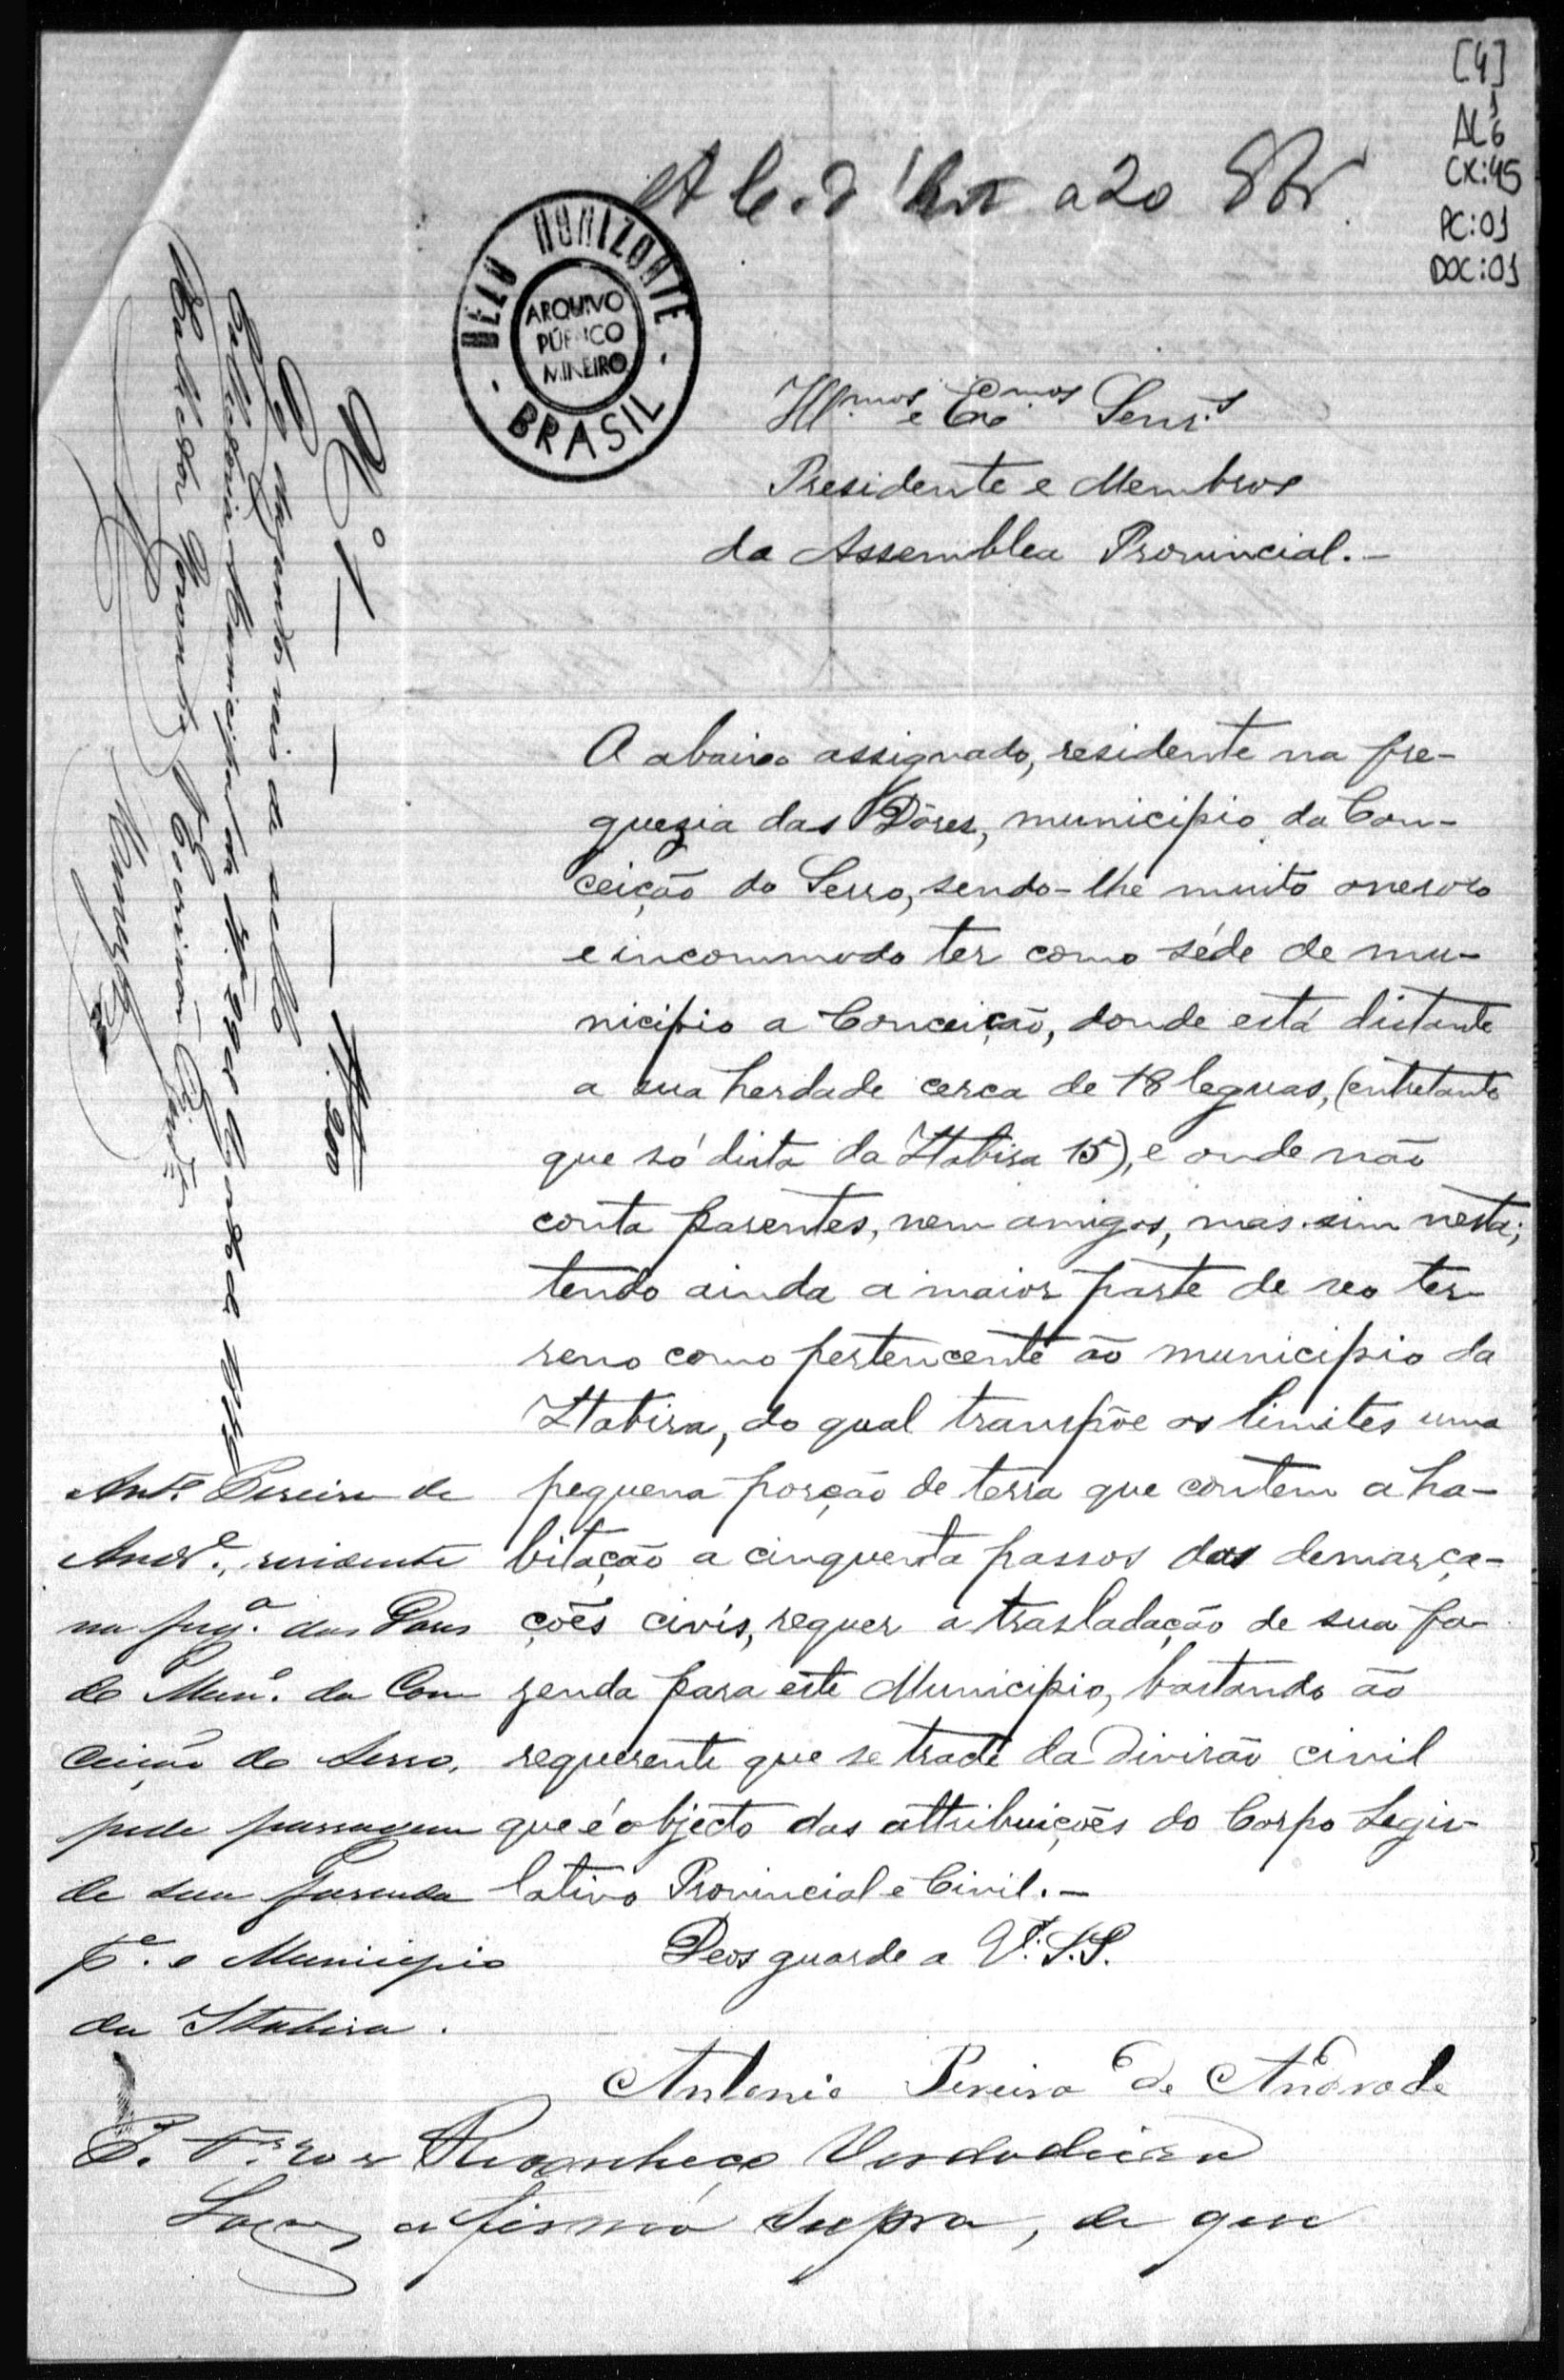 [4]
AL 1 6
CX:45
PC:01
DOC:01
a 20
BELO HORIZONTE
ARQUIVO
PÚBLICO
MINEIRO
BRASIL
Ill.mos e Ex.mos Senr.s
Presidente e Membros
da Assemblea Provincial.–
O abaixo assignado, residente na fre-
guezia das Dôres, municipio da Con-
ceição do Serro, sendo-lhe muito oneroso
e incommodo ter como séde de mu-
nicipio a Conceição, donde está distante
a sua herdade cerca de 18 leguas, (entretanto
que só dista da Itabira 15), e onde não
conta parentes, nem amigos, mas sim nesta;
tendo ainda a maior parte de seo ter-
reno como pertencente ao municipio da
Itabira, do qual transpõe os limites uma
pequena porção de terra que contem a ha-
bitação a cinquenta passos das demarca-
ções civis, requer a trasladação de sua fa-
zenda para este Municipio, bastando ao
requerente que se trate da divisão civil
que é objecto das attribuições do Corpo Legis-
lativo Provincial e Civil.–
Deos guarde a V.S.S.
Antonio Pereira de Andrade
Ant.o Pereira de
Andr.e, residente
na freg.a das Dores
do Mun.o da Con
ceição do Serro,
pede passagem
de sua fazenda
p.a o Municipio
da Itabira.
Reconheço Verdadeira
a firma supra, de que
N.o 1 — — — 200
duzentos reis de sello